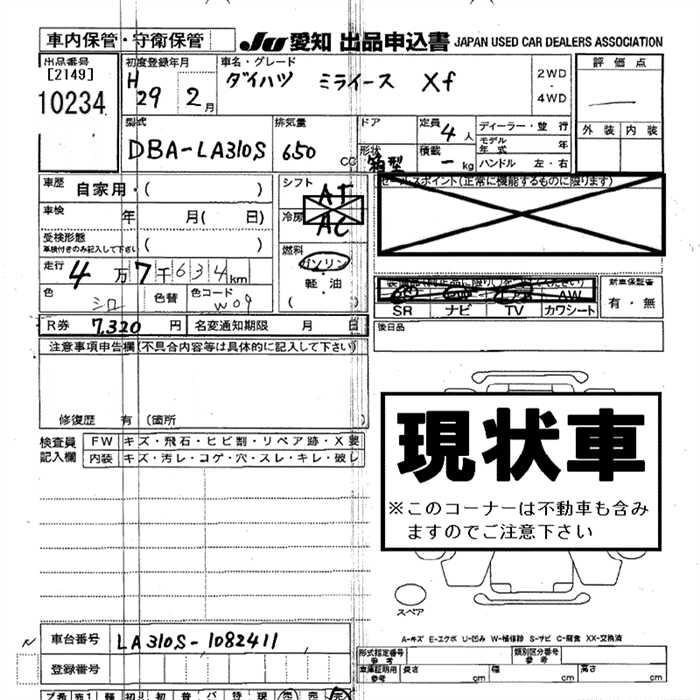 車内保管・守衛保管 JU 愛知 出品申込書 JAPAN USED CAR DEALERS ASSOCIATION
出品番号 初度登録年月 車名・グレード 評価点
[2149] H ダイハツ ミライース Xf 2WD
10234 29年 2月 4WD
外装 内装
型式 排気量 ドア 定員 4人 ディーラー・並行
DBA-LA310S 650 CC 形状 箱型 積載 - kg モデル年式 年
ハンドル 左・右
車歴 自家用・( ) シフト AT セールスポイント(正常に機能するものに限ります)
車検 年 月( 日) 冷房 AC
受検形態 ( )
車検付きのみ記入して下さい
燃料
走行 4万7千634km ガソリン
軽・油
( )
AW 新車保証書
色 シロ 色替 色コード W09 SR ナビ TV カワシート 有・無
R券 7,320円 名変通知期限 月 日 後日品
注意事項申告欄(不具合内容等は具体的に記入して下さい)
修復歴 有 (箇所 )
現状車
※このコーナーは不動車も含み
ますのでご注意下さい
検査員 FW キズ・飛石・ヒビ割・リペア跡・X要
記入欄 内装 キズ・汚レ・コゲ・穴・スレ・キレ・破レ
スペア
A-キズ E-エクボ U-凹み W-補修跡 S-サビ C-腐食 XX-交換済
車台番号 LA310S-1082411
登録番号
形式指定番号 参考 類別区分番号 参考
車庫証明用 参考 長さ cm 幅 cm 高さ cm